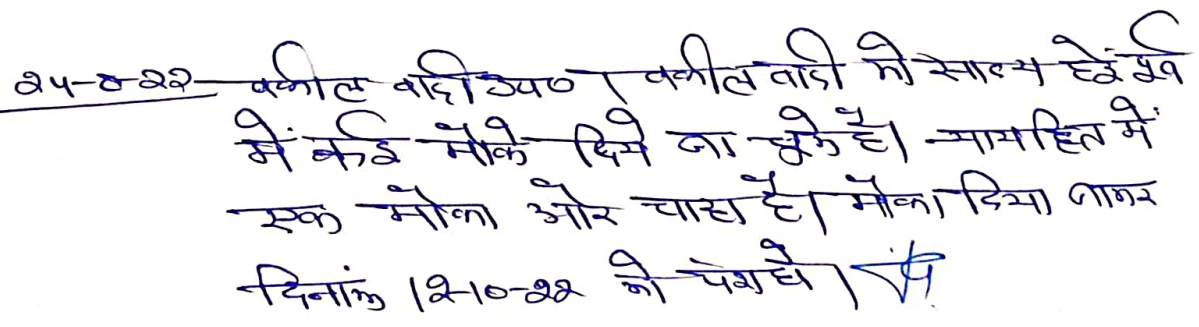 २५-८-२२ वकील वादी उप० । वकील वादी को साक्ष्य हेतु पूर्व
में कई मौके दिये जा चुके है। न्यायहित में
एक मौका और चाहा है। मौका दिया जाकर
दिनांक 12-10-22 को पेश हो।